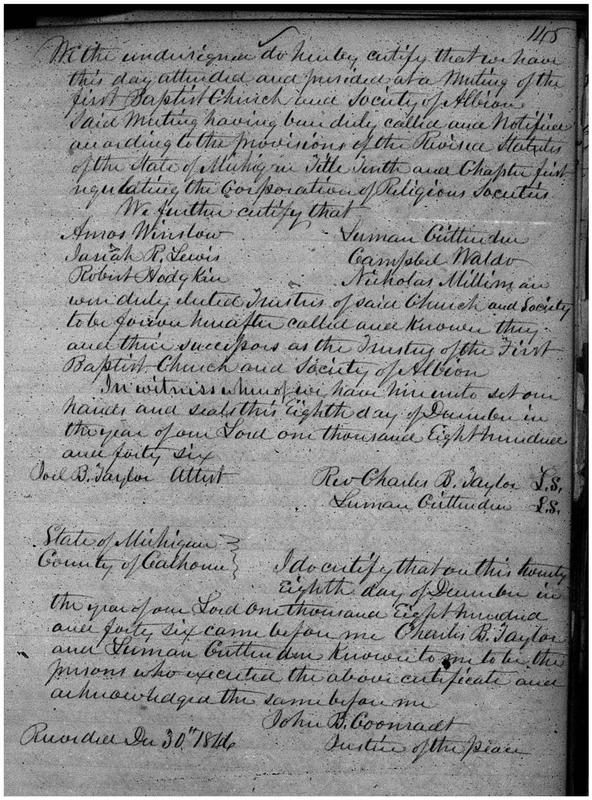 145
We the undersigned do hereby certify that we have
this day attended and presided at a Meeting of the
first Baptist Church and Society of Albion
Said Meeting having been duly called and Notified
according to the provisions of the Revised Statutes
of the State of Michigan Title Tenth and Chapter first
regulating the Corporation of Religious Societies
We further certify that
Amos Winslow Luman Crittenden
Josiah R. Lewis Campbel Waldo
Robert Hodgkin Nicholas Milliman
were duly elected Trusties of said Church and Society
to be forever hereafter called and Known they
and their successors as the Trustees of the First
Baptist Church and Society of Albion
In witness whereof we have hereunto set our
hands and seals this Eighth day of December in
the year of our Lord one thousand Eight hundred
and forty six
Joel B. Taylor Attest Rev Charles B. Taylor L.S.
Luman Crittenden L.S.
State of Michigan
County of Calhoun } I do certify that on this twenty
Eighth day of December in
the year of our Lord One thousand Eight hundred
and forty six came before me Charles B. Taylor
and Luman Crittenden Known to me to be the
persons who executed the above certificate and
acknowledged the same before me
John B. Coonradt
Recorded Dec 30" 1846 Justice of the peace